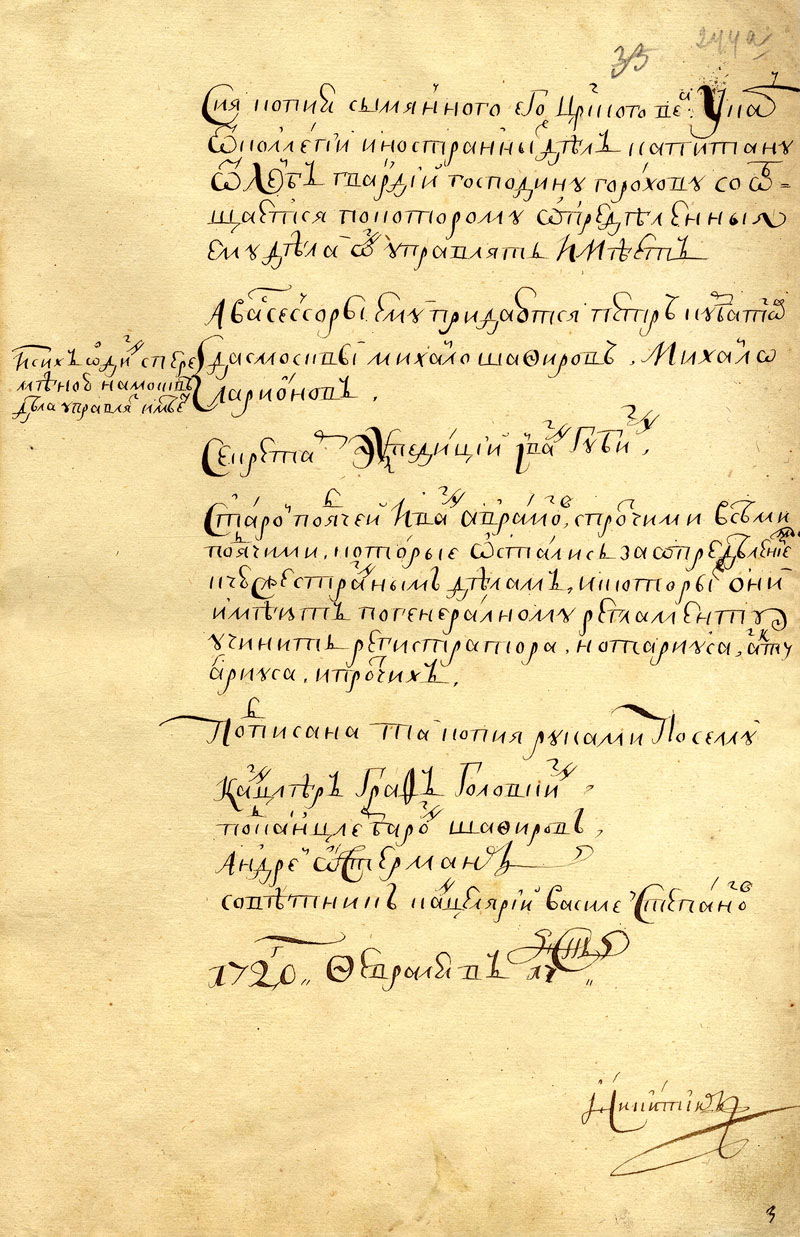 35 244а
Сия копия съимянного его Црского ве: Указ
Ѿ коллегїи иностранных дѣлъ капитану
Ѿ Леѳбъ гвардїи господину горохову соѿб=
щается покоторому ѡпредѣленныя
ему дѣла ѡн управлять имѣетъ
Авасессоры ему придается петръ курбатов
Дасмосквы михайло шафировъ, Михайло
Ларионовъ,
исихъ ѡдин спере
мѣною намосквѣ
дѣла управлят имѣе
Секретар Экспедицїи Иван Губин,
Старой подячей Иван аврамов, спрочими всѣми
подячими, которые ѡстались заѡпредѣленїем
кчюжестранным дѣлам, икоторы они
имѣютъ погенералному регламенту
учинить регистратора, нотариуса, акту
ариуса, ипрочихъ,
Подписана та копия руками Посему
Канцлеръ Графъ Головкин
подканцлер баро шафировъ,
Андрей ѡстерманъ
совѣтникъ канцелярїи василей Степанов
1720,, Февраля въ 17 ,,
Никитинъ
3